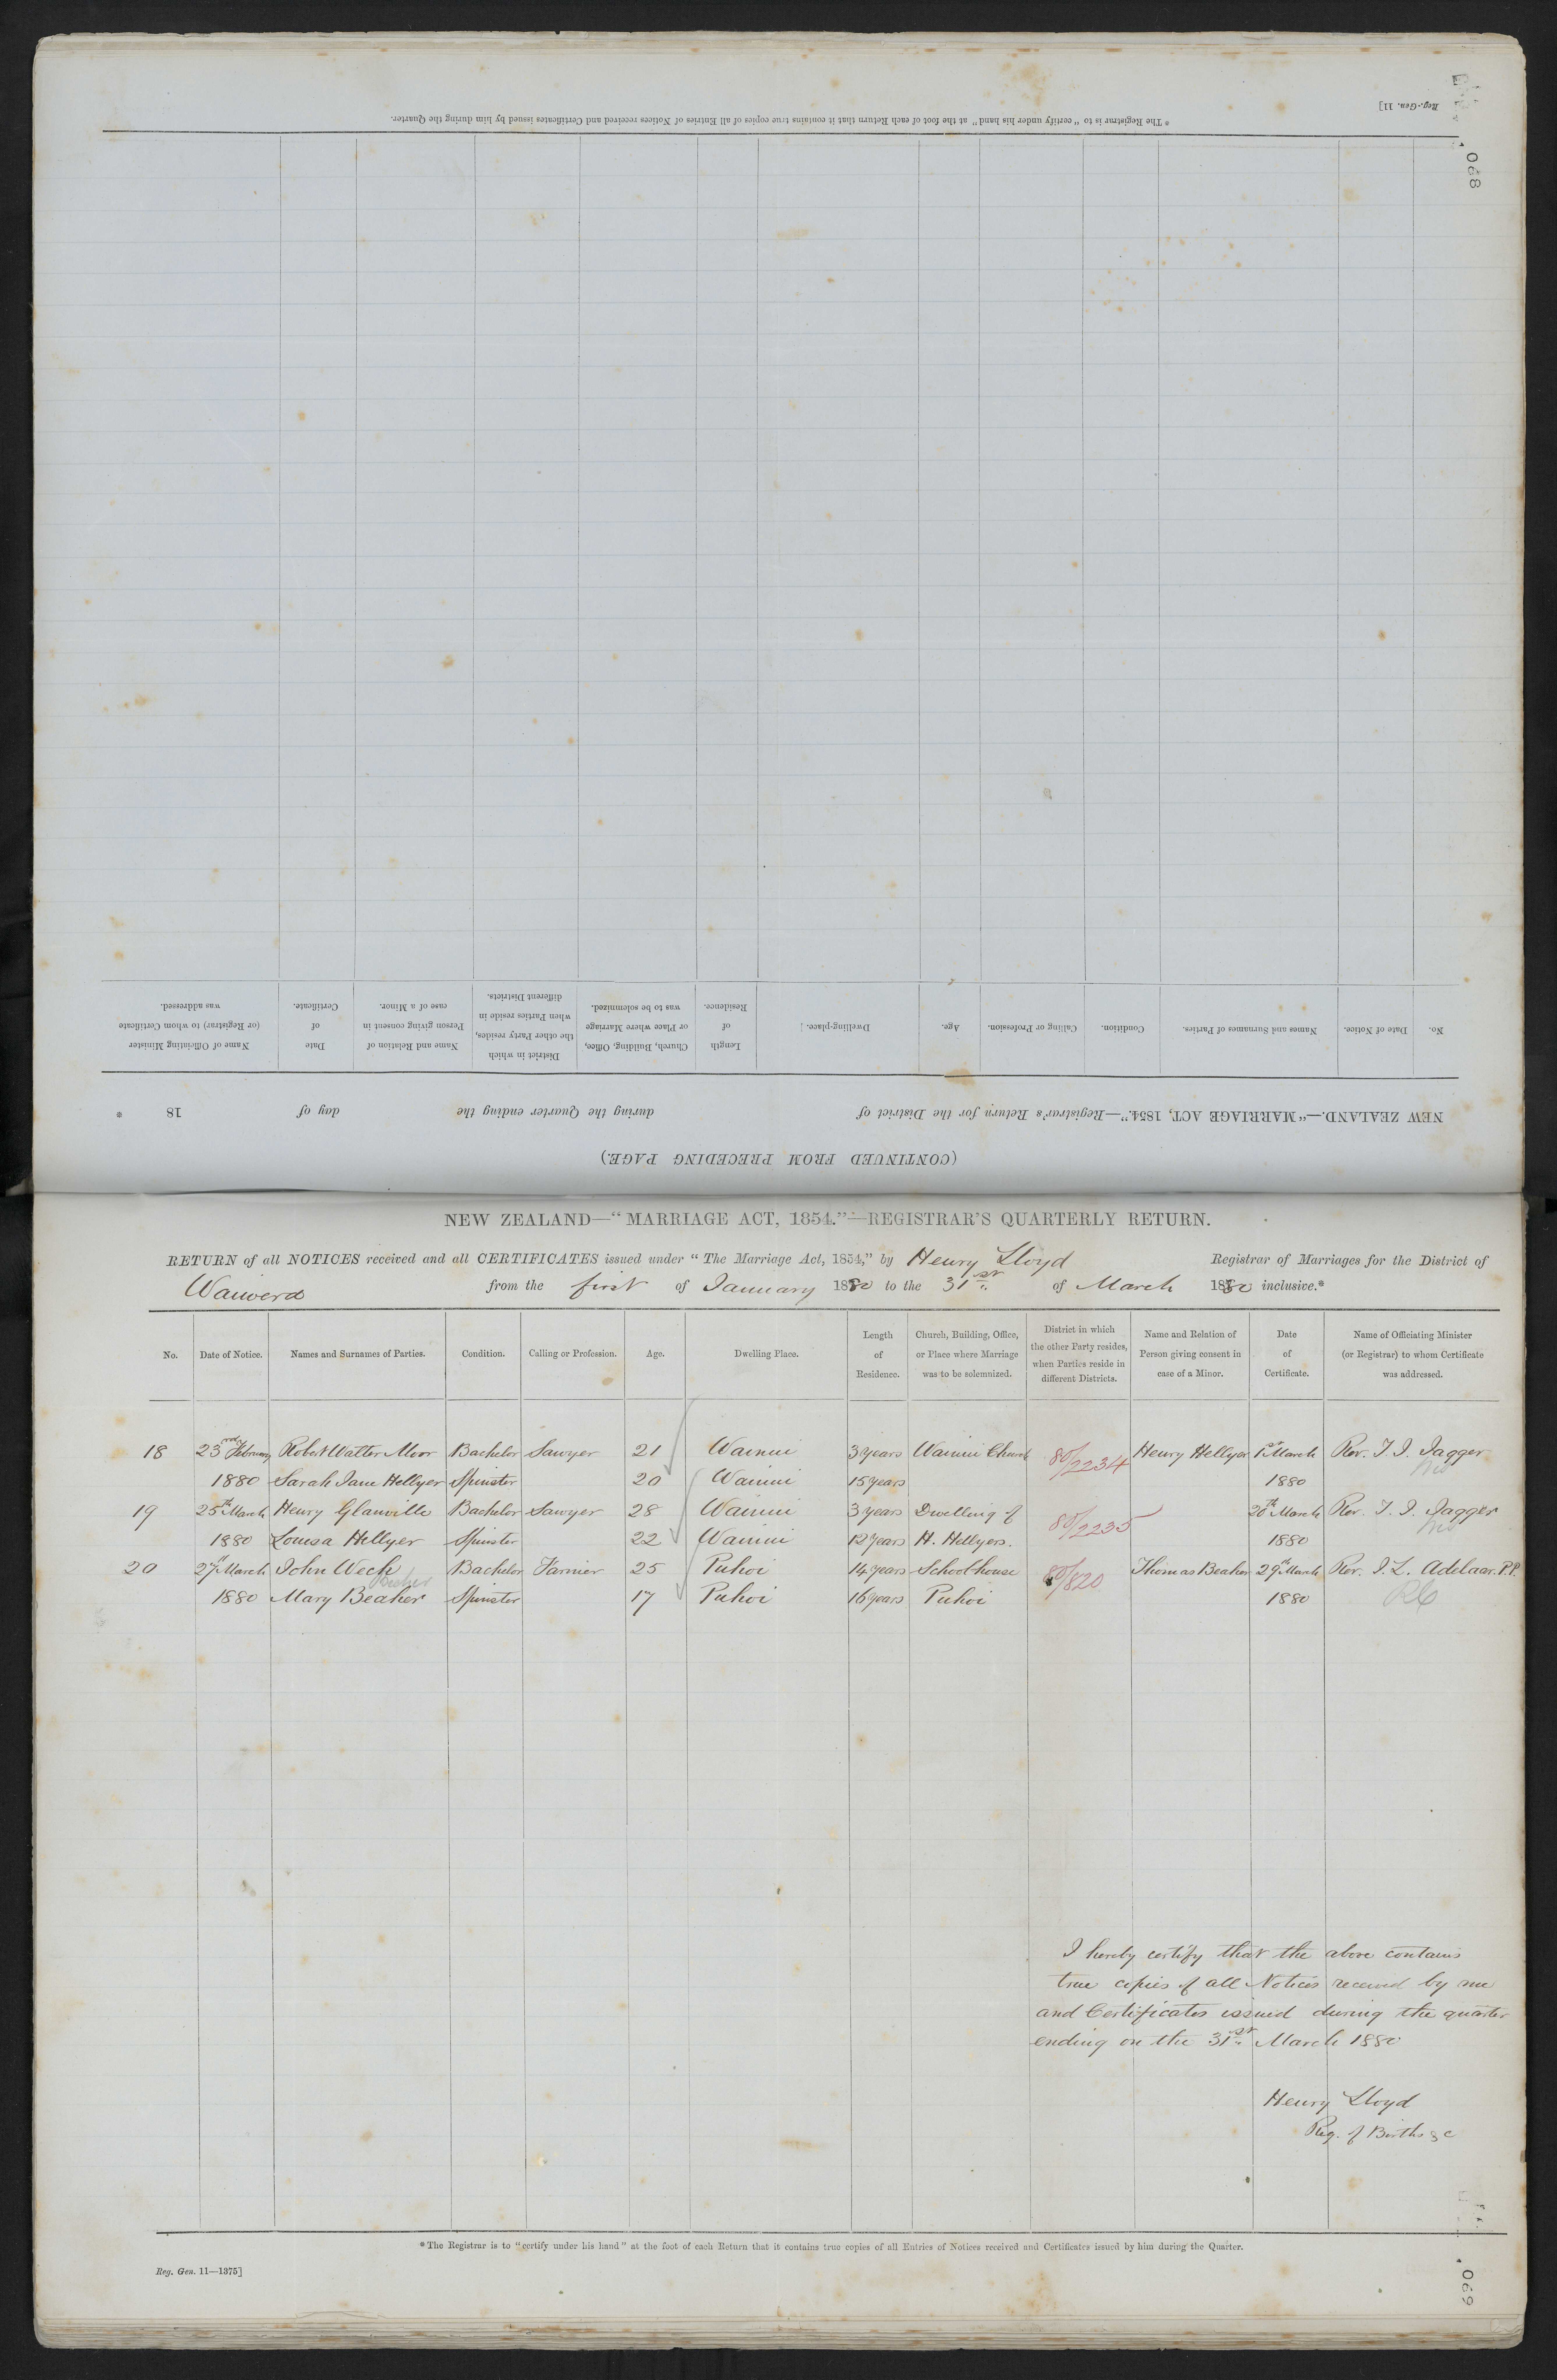 Reg.-Gen. 11]
068
* The Registrar is to "certify under his hand" at the foot of each Return that it contains true copies of all Entries of Notices received and Certificates issued by him during the Quarter.
(CONTINUED FROM PRECEDING PAGE.)
NEW ZEALAND.—"MARRIAGE ACT, 1854."—Registrar's Return for the District of during the Quarter ending the day of 18 *
No. Date of Notice. Names and Surnames of Parties. Condition. Calling or Profession. Age. Dwelling-place. Length of Residence. Church, Building, Office, or Place where Marriage was to be solemnized. District in which the other Party resides, when Parties reside in different Districts. Name and Relation of Person giving consent in case of a Minor. Date of Certificate. Name of Officiating Minister (or Registrar) to whom Certificate was addressed.
NEW ZEALAND—"MARRIAGE ACT, 1854."—REGISTRAR'S QUARTERLY RETURN.
RETURN of all NOTICES received and all CERTIFICATES issued under "The Marriage Act, 1854," by Henry Lloyd Registrar of Marriages for the District of
Waiwera from the first of January 1880 to the 31st of March 1880 inclusive.*
No. Date of Notice. Names and Surnames of Parties. Condition. Calling or Profession. Age. Dwelling Place. Length of Residence. Church, Building, Office, or Place where Marriage was to be solemnized. District in which the other Party resides, when Parties reside in different Districts. Name and Relation of Person giving consent in case of a Minor. Date of Certificate. Name of Officiating Minister (or Registrar) to whom Certificate was addressed.
18 23rd February Robert Walter Moor Bachelor Sawyer 21 Wainui 3 years Wainui Church 80/2234 Henry Hellyer 1st March Rev. T. J. Jagger
1880 Sarah Jane Hellyer Spinster 20 Wainui 15 years 1880
19 25th March Henry Glanville Bachelor Sawyer 28 Wainui 3 years Dwelling of 80/2235 26th March Rev. T. J. Jagger
1880 Louisa Hellyer Spinster 22 Wainui 12 years H. Hellyers. 1880
20 27th March John Wech Bachelor Farmer 25 Puhoi 14 years Schoolhouse 80/820 Thomas Beaher 29th March Rev. I. L. Adelaar. P.P.
1880 Mary Beaher Spinster 17 Puhoi 16 years Puhoi 1880 RC
I hereby certify that the above contains
true copies of all Notices received by me
and Certificates issued during the quarter
ending on the 31st March 1880
Henry Lloyd
Reg. of Births &c
* The Registrar is to "certify under his hand" at the foot of each Return that it contains true copies of all Entries of Notices received and Certificates issued by him during the Quarter.
Reg. Gen. 11—1375]
069